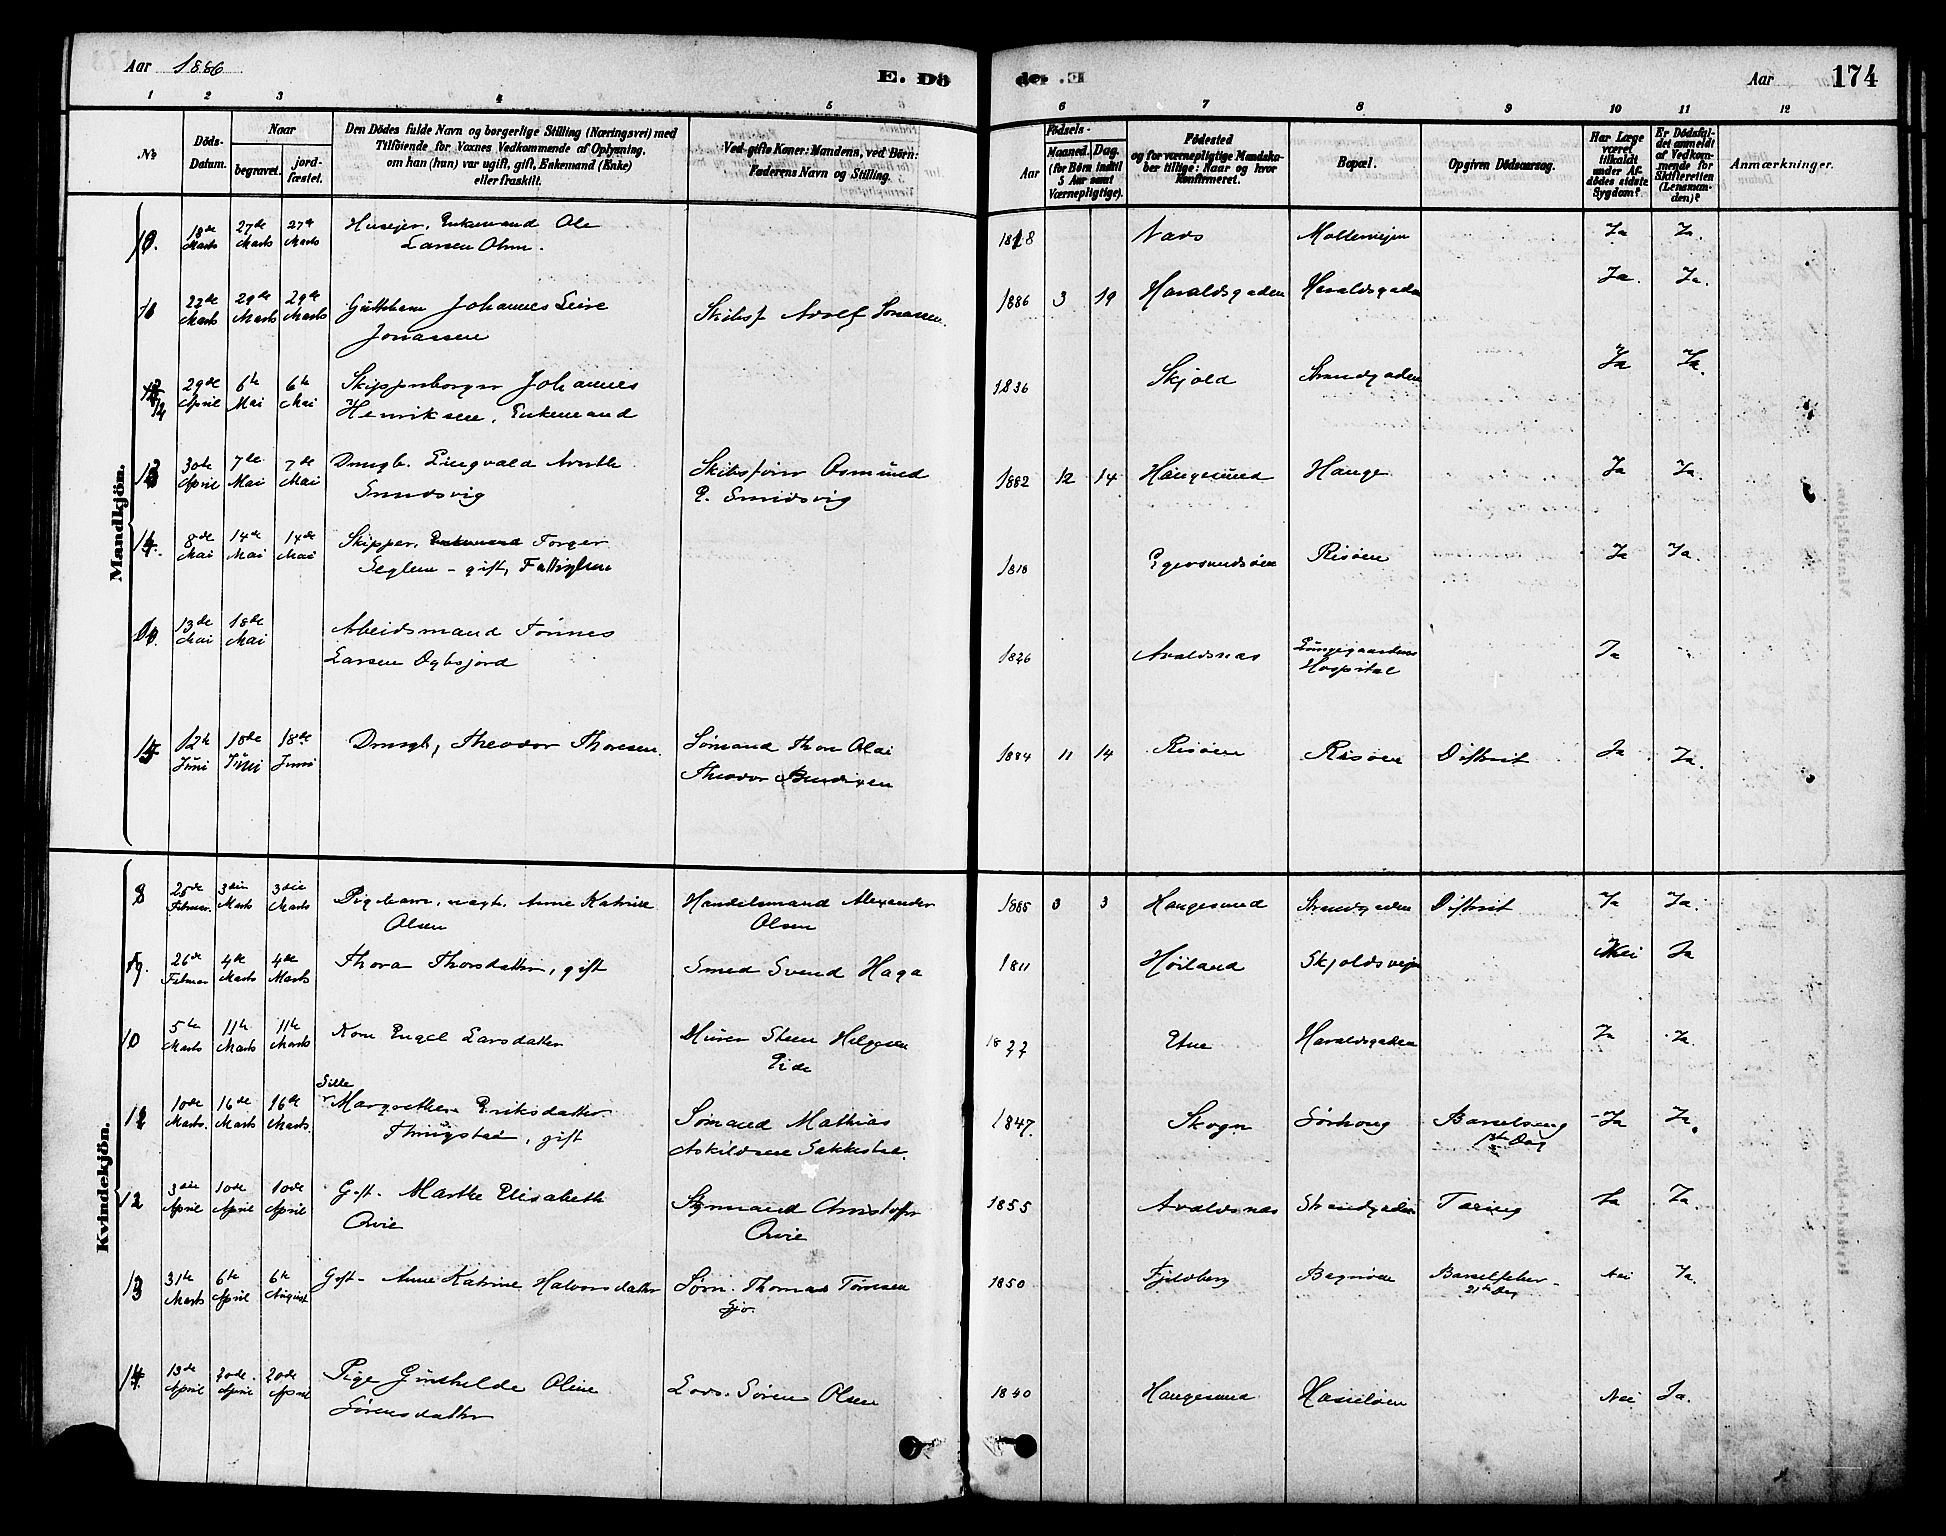 Aar 1886
E. Dö
de. E
Aar
174
1 2 3 4 5 6
6 7 8 9 10 11 12
No
Döds-Datum.
Naar
begravet.
jord-fæstet.
Den Dödes fulde Navn og borgerlige Stilling (Næringsvei) med
Tilföiende for Voxnes Vedkommende af Oplysning,
om han (hun) var ugift, gift, Enkemand (Enke)
eller fraskilt.
Ved gifte Koner: Mandens, ved Börn:
Faderens Navn og Stilling.
Födsels-
Aar
Maaned. Dag.
(for Börn indtil
5 Aar samt
Værnepligtige).
Födested
og for værnepligtige Mandska-
ber tillige: Naar og hvor
Konfirmeret.
Bopæl.
Opgiven Dödsaarsag.
Har Læge
været
tilkaldt
under Af-
dödes sidste
Sygdom?
Er Dödsfal-
det anmeldt
af Vedkom-
mende for
Skifteretten
(Lensman-
den)?
Anmærkninger.
Mandkjön.
10. 18de Marts 27de Marts 27de Marts Huseier, Enkemand Ole
Larsen 1818 Ja Ja.
11 22de Marts 29de Marts 29de Marts Guttebarn Johannes
Jonassen Skibsf Adolf Jonassen. 1886 3 19 Haraldsgaden Haraldsgaden Ja. Ja.
12 29de April 6te Mai 6te Mai Skippenborger Johannes
Henriksen, Enkemand 1836 Skjold Strandgaden Ja Ja.
13 30te April 7de Mai 7de Mai Drengb. Lingvald
Smedsvig Skibsfører Osmund
P. Smedsvig 1882 12 14 Haugesund Hauge Ja Ja.
14. 8de Mai 14de Mai 14de Mai Skipper, Torger
Seglem - gift, 1818 Egersundsøen Risöen Ja Ja.
13de Mai 18de Mai Arbeidsmand Tönnes
Larsen 1826 Avaldsnæs Lungegaardens
Hospital Ja
15 12te Juni 18de Juni 18de Juni Drengb, Theodor Thoresen. Sömand Thore Olai
Theodor 1884 11 14 Risöen Risöen Difterit Ja Ja.
Kvindekjön.
8 25de Februar 3die Marts 3die Marts Pigebarn, Anne Katrine
Olsen Handelsmand Alexander
Olsen 1885 3 3 Haugesund Strandgaden Difterit Ja Ja.
9. 26de Februar 4de Marts 4de Marts Thora Thorsdatter, gift Smed Svend Haga 1811 Höiland Skjoldsveien Nei Ja
10 5te Marts 11te Marts 11te Marts Kone Engel Larsdatter Murer Steen Helgesen
Eide 1822 Etne Haraldsgaden Ja Ja.
Sille
11 10de Marts. 16de Marts 16de Marts. Margrethe Eriksdatter
Thingstad, gift Sömand Mathias
Askildsen Sakkestad. 1847. Skogn Sörhaug Barselseng
1ste Dag Ja Ja.
12 3die April 10de April 10de April Gift. Marthe Elisabeth
Qvie Sömand Christoffer
Qvie 1855 Avaldsnæs Strandgaden Tæring Ja Ja.
13 31te Marts 6te April 6te August Gift- Anne Katrine Halvorsdatter Sörn. Thomas Tönnesen
Gjö. 1850 Fjeldberg Barselfeber -
21de Dag Nei Ja.
14. 13de April 20de April 20de April Pige Gunhilde Oline
Sörensdatter Lods. Sören Olsen 1840 Haugesund Hasselöen Nei Ja.